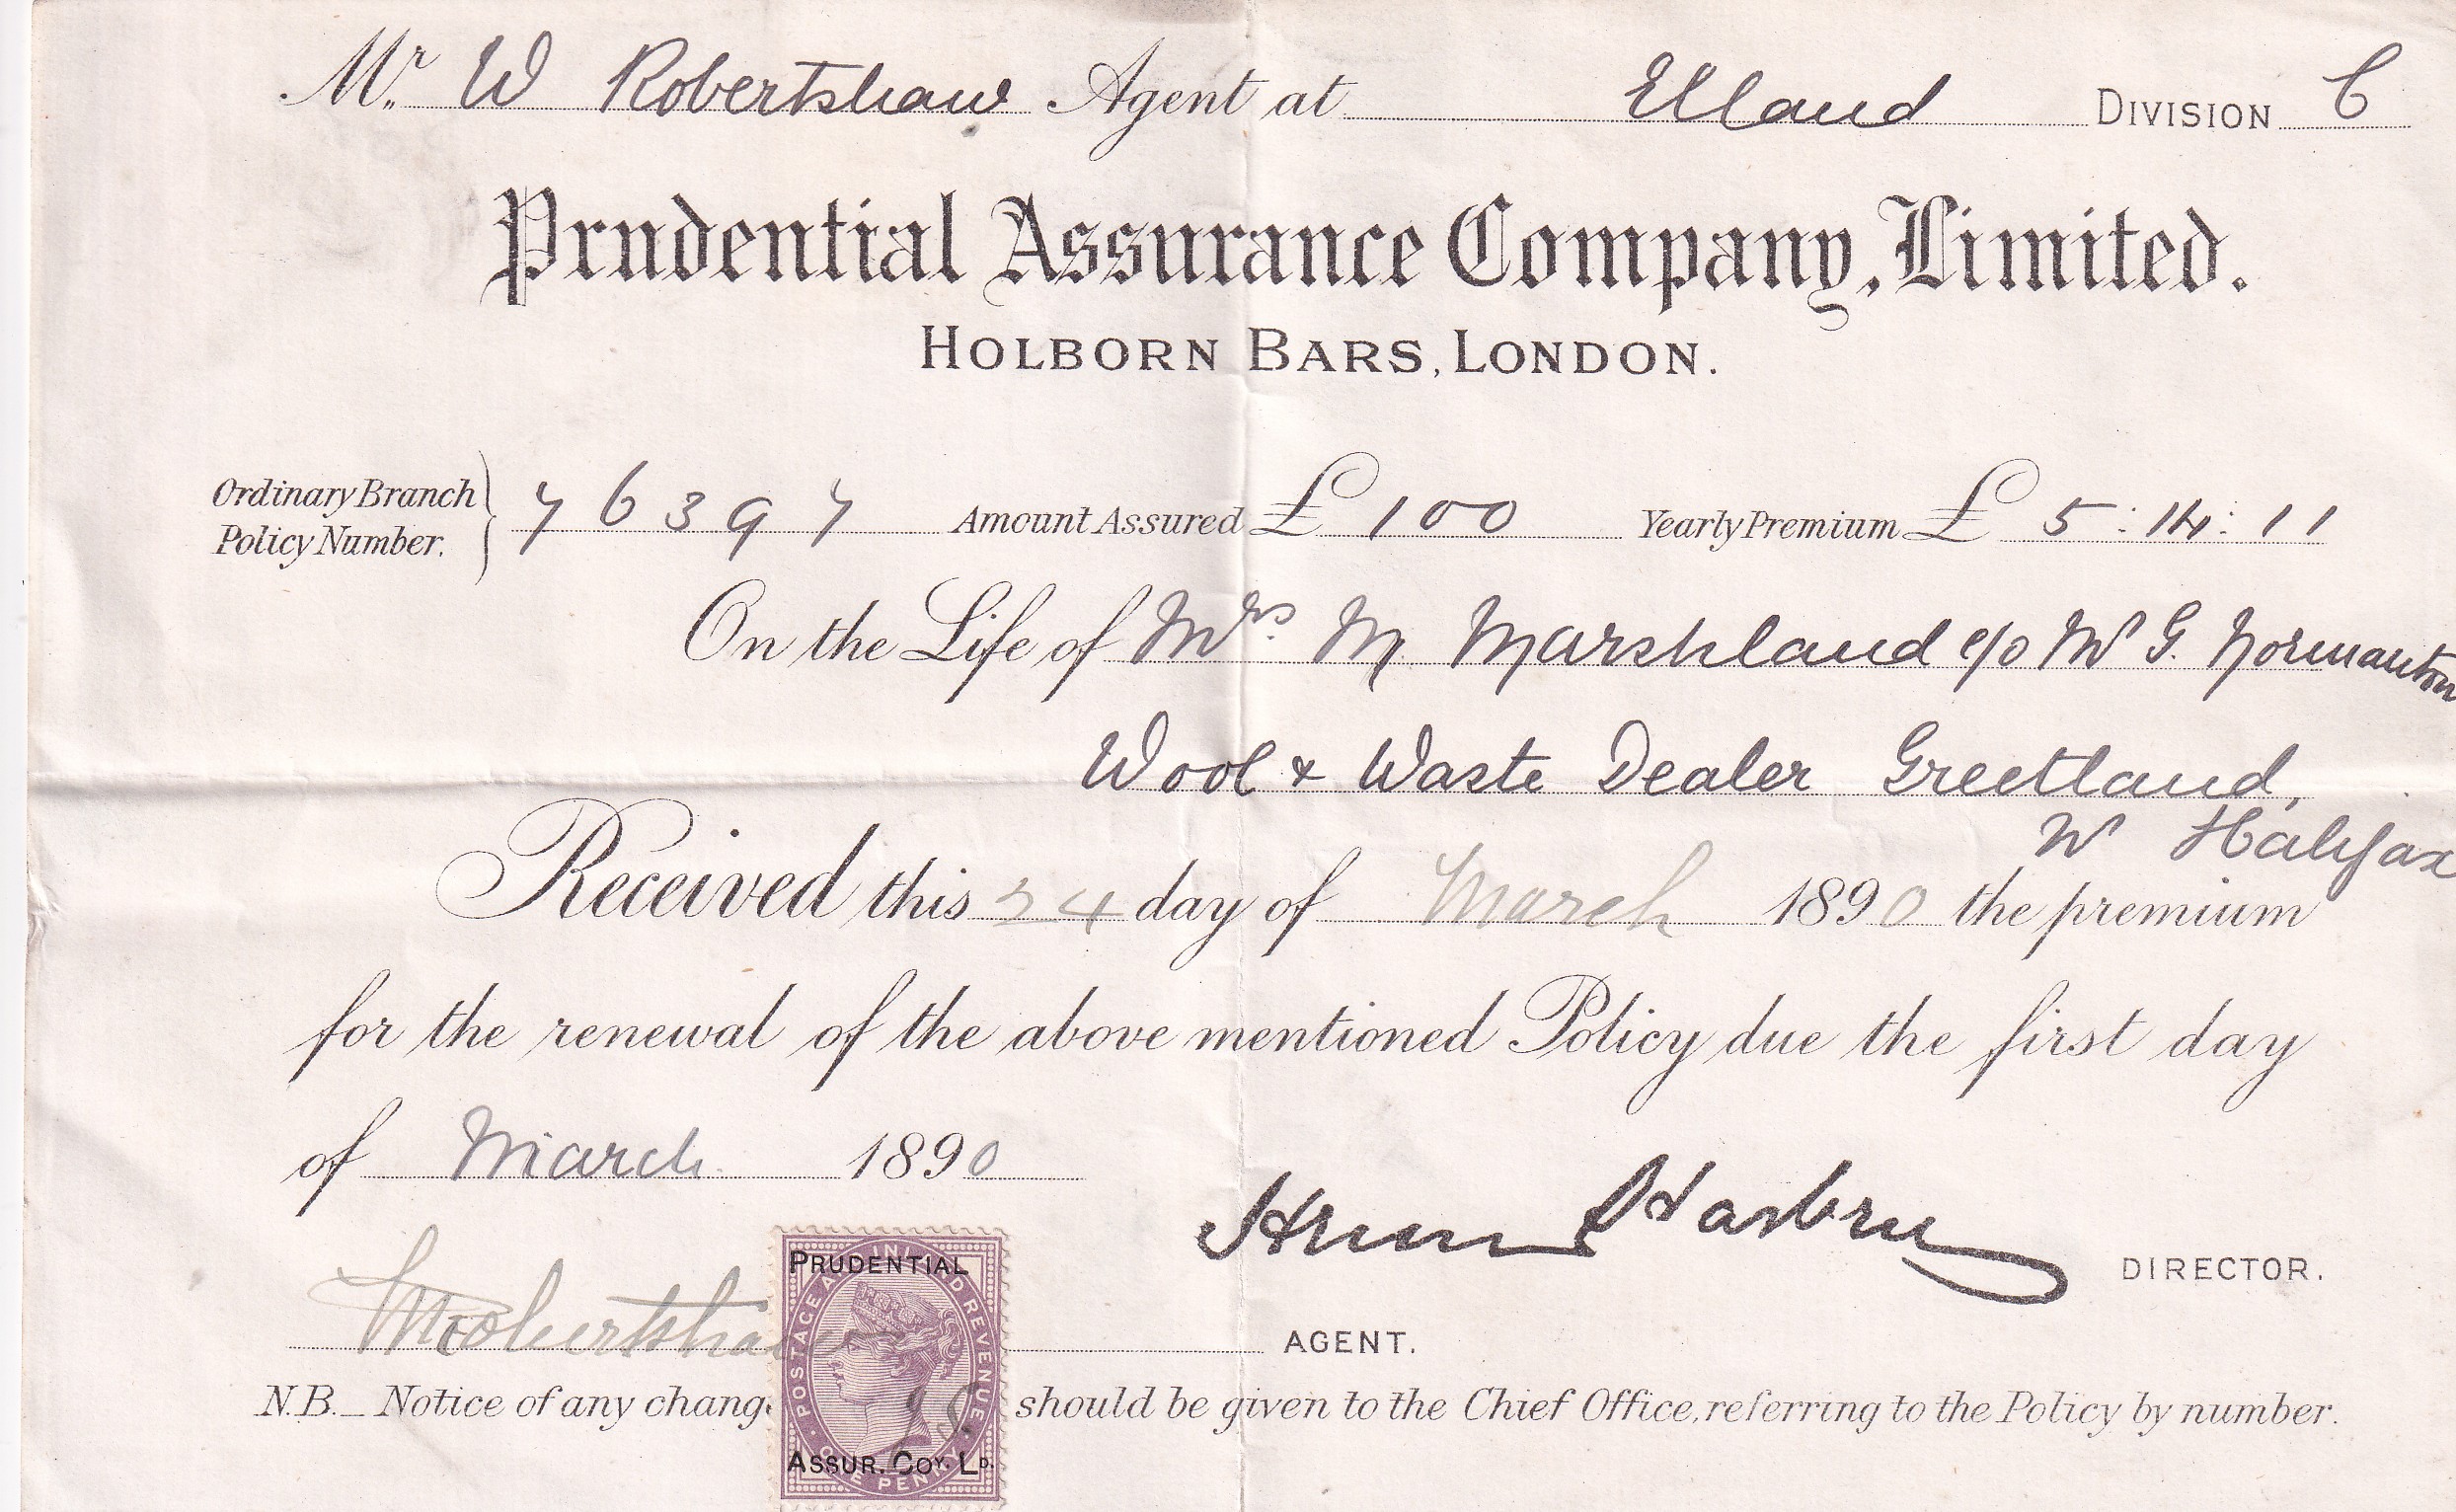 Mr. W Robertshaw Agent at Elland DIVISION C
Prudential Assurance Company, Limited.
HOLBORN BARS, LONDON.
Ordinary Branch Policy Number. 76397 Amount Assured £ 100 Yearly Premium £ 5:14:11
On the Life of Mrs. M Marshland c/o Mr G. Normanton
Wool & Waste Dealer Greetland,
Nr Halifax
Received this 24 day of March 1890 the premium
for the renewal of the above mentioned Policy due the first day
of March 1890
DIRECTOR.
WRobertshaw AGENT.
N.B._ Notice of any change should be given to the Chief Office, referring to the Policy by number.
PRUDENTIAL
POSTAGE AND INLAND REVENUE
ASSUR. COY. LD.
ONE PENNY